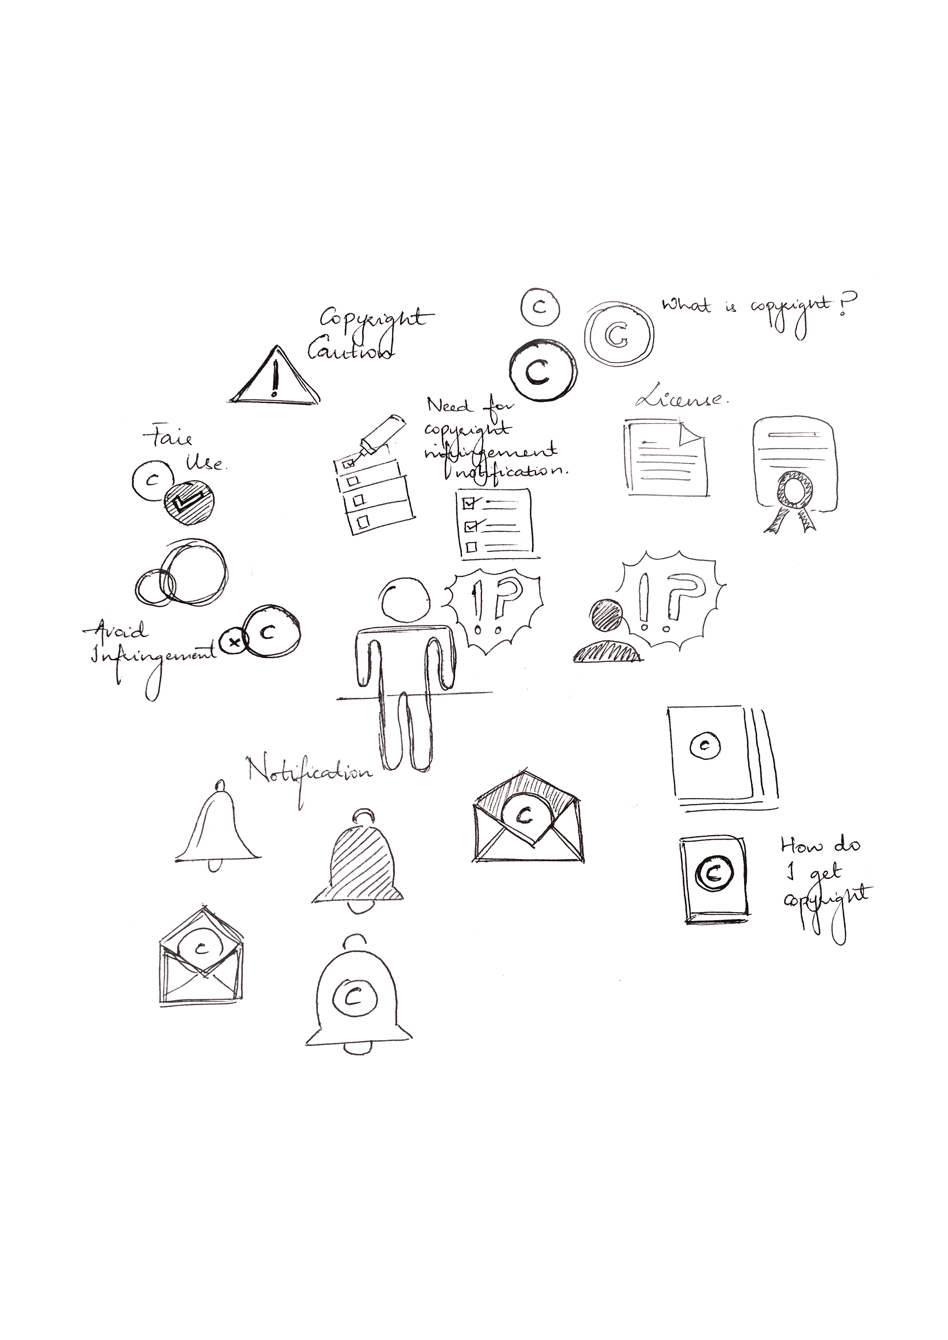 Copyright
Caution
!
C
C
C
What is copyright?
Need for
copyright
infringement
notification.
License.
Fair
Use.
C
Avoid
Infringement
x
C
!?
!?
Notification
C
C
C
C
C
How do
I get
copyright